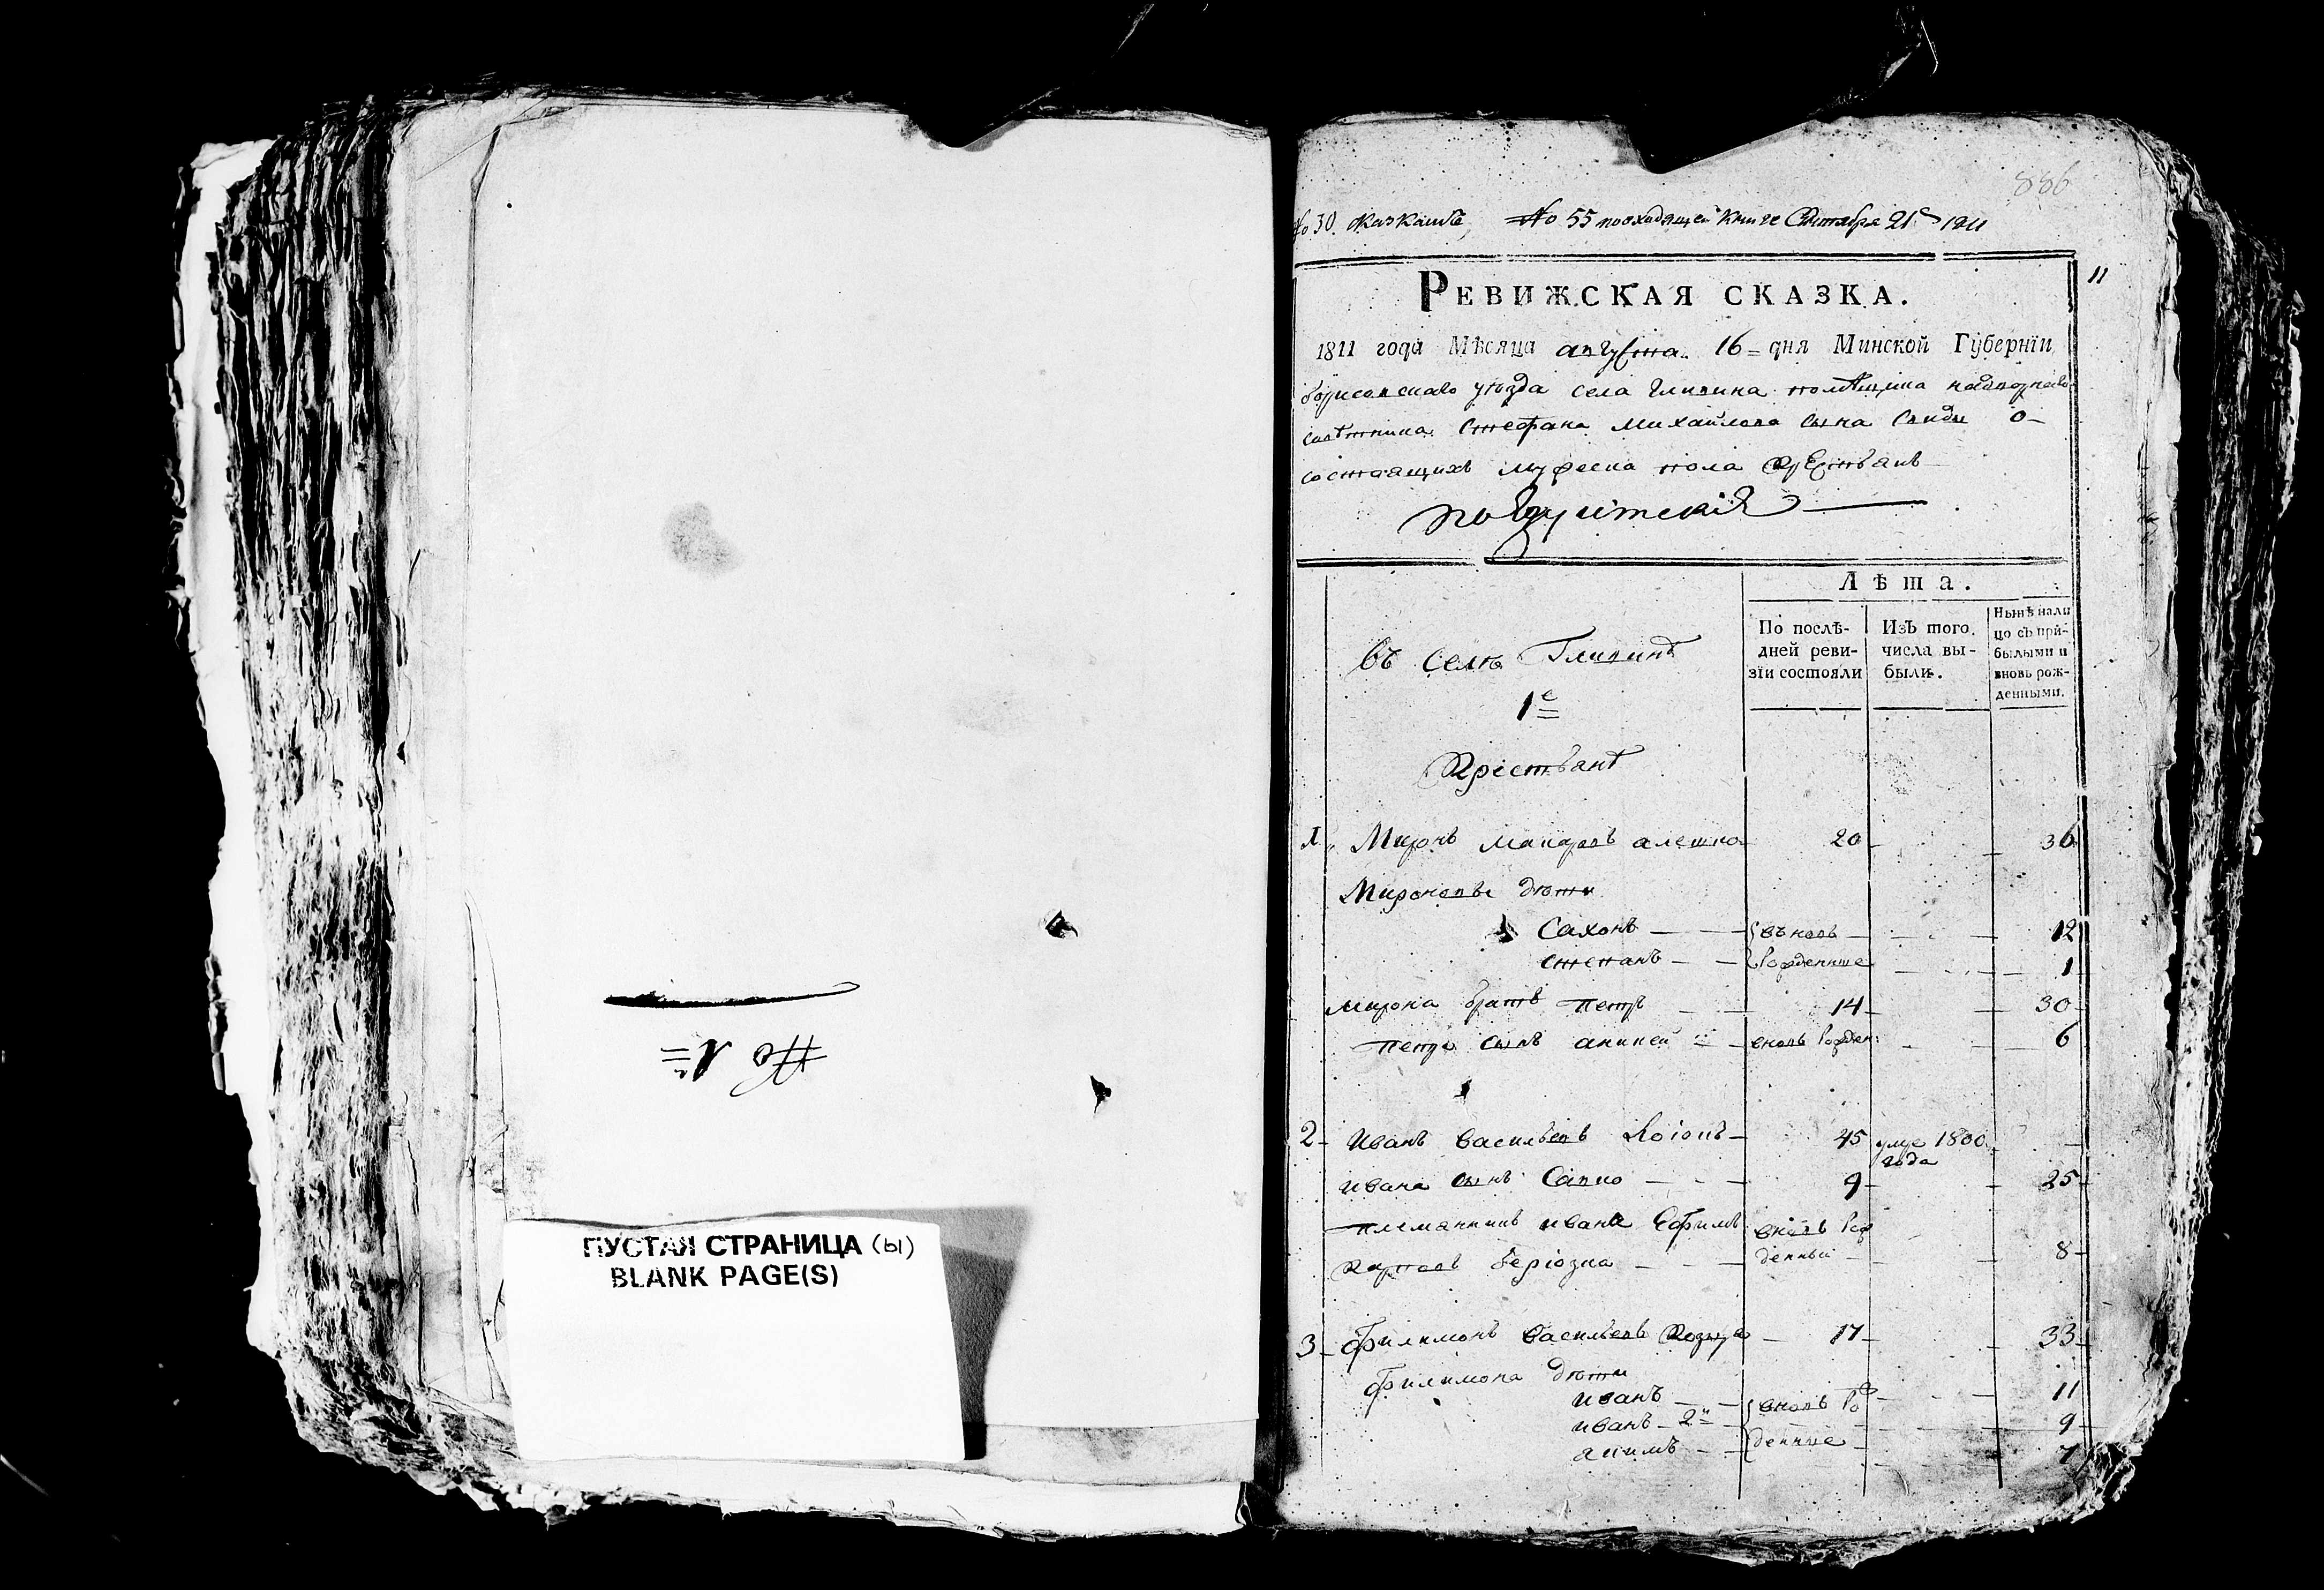 № 1й
ПУСТАЯ СТРАНИЦА (ы)
BLANK PAGE(S)
886
№ 30. № 55 по входящей книге Сентября 21 1811
11
РЕВИЖСКАЯ СКАЗКА.
1811 года Мѣсяца августа 16 = дня Минской Губернїи
борисовскаго уѣзда села Гливина помѣщика надворнаго
совѣтника Стефана Михайлова сына о
состоящихъ мужеска пола крестьянъ
Лѣта.
По послѣ-
дней реви-
зїи состояли
Изъ того.
числа вы-
были.
Нынѣ нали
цо съ при-
былыми и
вновь рож-
денными.
въ селѣ Гливинѣ
1е
Крестьянѣ
1. Миронъ Макаровъ алешко 20 36
Мироновы дѣти
Сахонъ въновь 12
степанъ рожденные 1
мирона братъ петръ 14 30
петра сынъ аникей вновь рожден: 6
2 Иванъ Васильевъ 45 умре 1800
года
ивана сынъ Савко 9 25
племянникъ ивана Ефимъ вновь рож
Карповъ беріозка денный 8
3 Филимонъ Васильевъ Козыра 17 33
Филимона дѣти
иванъ вновь ро 11
иванъ 2й 9
акимъ денные 7